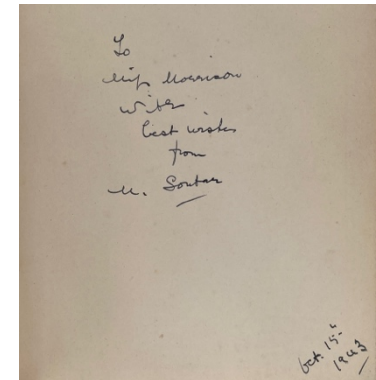 To
Miss Morrison
with
best wishes
from
W. Soutar
Oct. 15th
1943